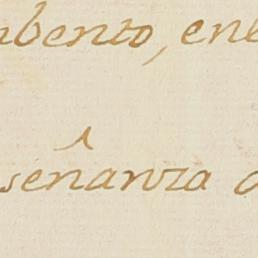 mbento, ene
señanza